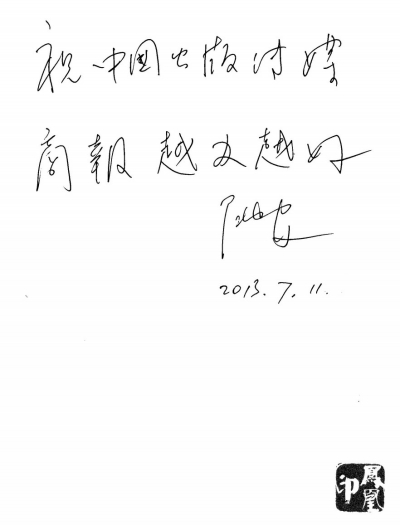 祝中國出版传媒
商報越办越好
2013.7.11.
鳳凰印